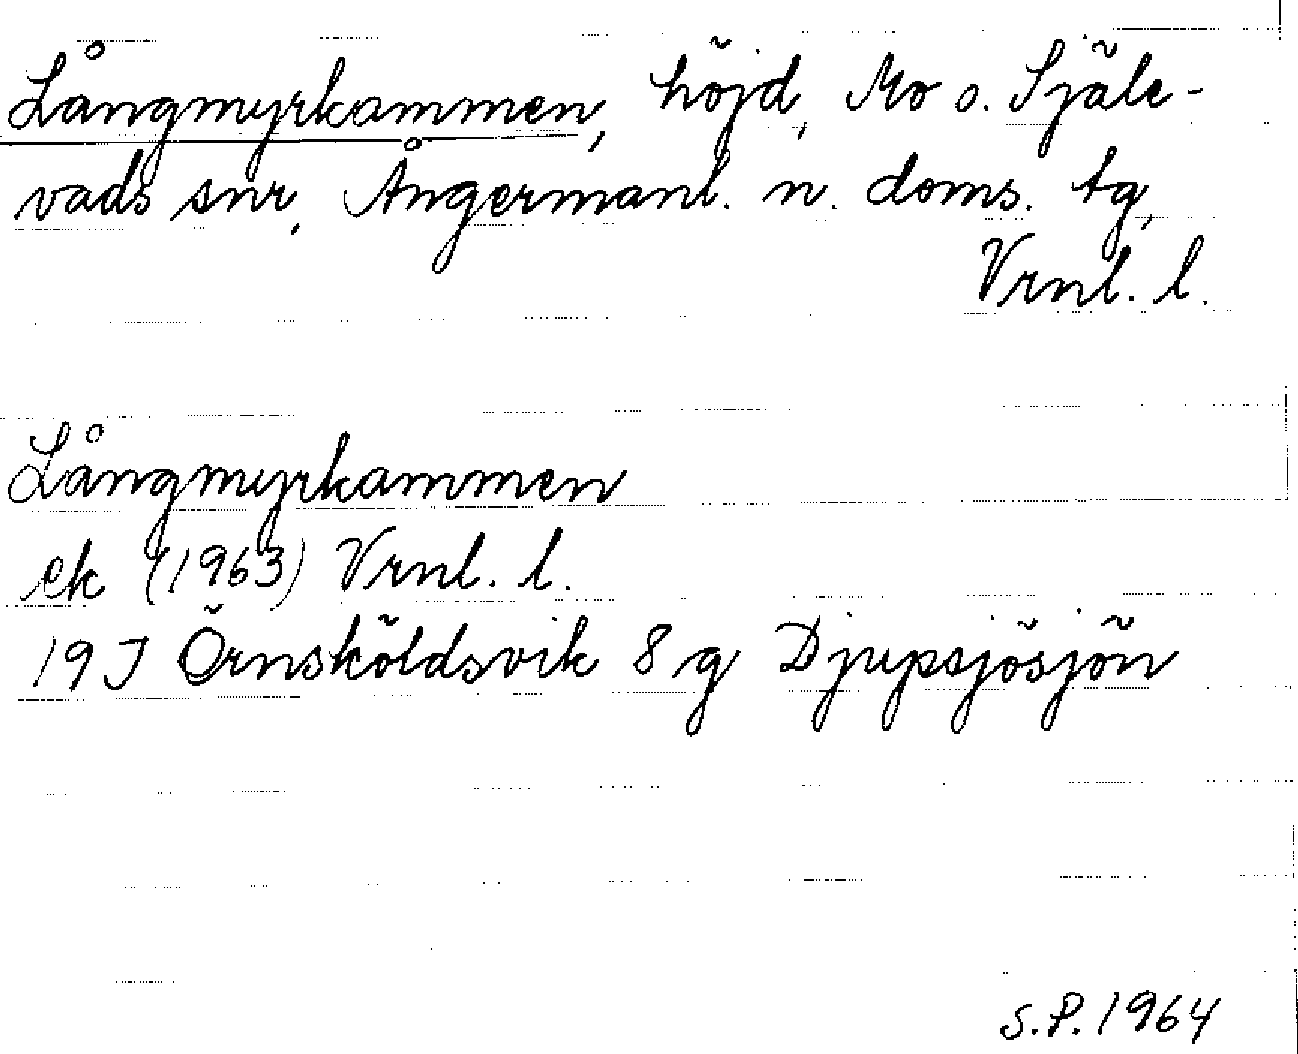 Långmyrkammen, höjd, Mo o. Själe-
vads snr, Ångermanl. n. doms. tg,
Vrnl. l.
Långmyrkammen
ek (1963) Vrnl. l.
19 J Örnsköldsvik 8 g Djupsjösjön
S.P. 1964